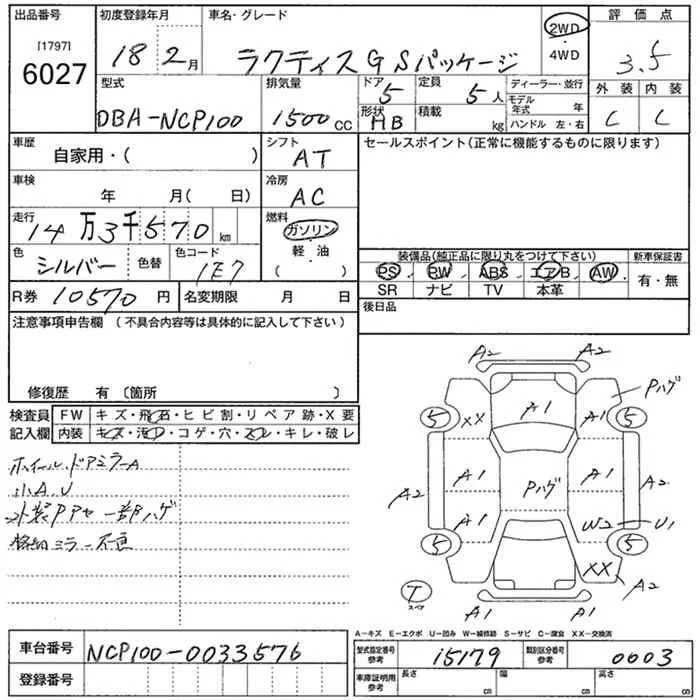 出品番号 初度登録年月 車名・グレード 評価点
[1797]
6027
18年2月 ラクティス GSパッケージ
2WD
・
4WD
3.5
外装 内装
C C
型式 排気量 ドア 定員 ディーラー・並行
DBA-NCP100 1500cc 5 5人
形状 積載 モデル年式 年
HB kg ハンドル 左・右
車歴 シフト セールスポイント(正常に機能するものに限ります)
自家用・( ) AT
車検 冷房
年 月( 日) AC
走行 燃料
14万3千570km ガソリン
・
軽油
( )
色 色コード
シルバー 色替 1E7
装備品(純正品に限り丸をつけて下さい) 新車保証書
PS PW ABS エアB AW 有・無
SR ナビ TV 本革
R券 10570円 名変期限 月 日
後日品
注意事項申告欄 (不具合内容等は具体的に記入して下さい)
修復歴 有〔箇所 〕
検査員 FW キズ・飛石・ヒビ割・リペア跡・X要
記入欄 内装 キズ・汚れ・コゲ・穴・スレ・キレ・破レ
ホイール.ドアミラーA
小A.U
外装Pアセー部ハゲ
格納ミラー不良
A2 A2
Pハゲ
A1
5 XX A1 5
A1 Pハゲ A1
A2 A2
A1 W2 U1
5 5
XX A2
T
スペア
A1 A1
A−キズ E−エクボ U−凹み W−補修跡 S−サビ C−腐食 XX−交換済
車台番号 NCP100-0033576
登録番号
型式指定番号 参考 15179 類別区分番号 参考 0003
車庫証明用 参考 長さ cm 幅 cm 高さ cm